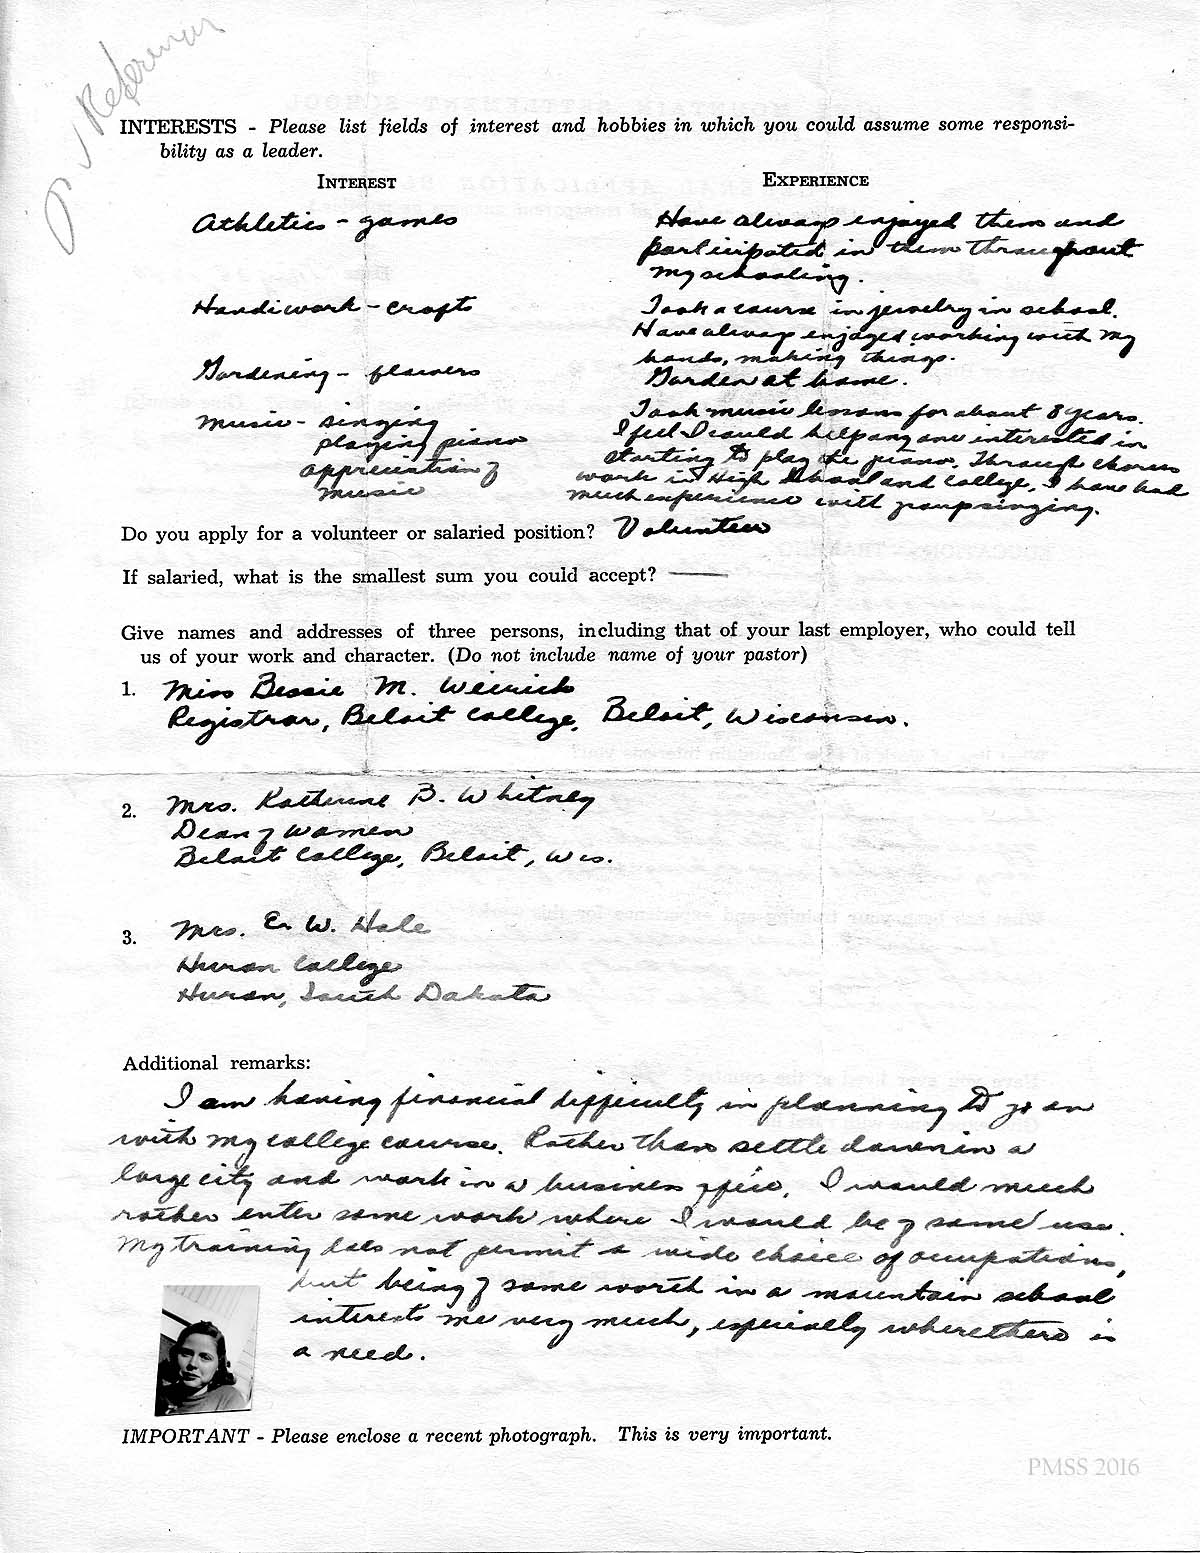 References
INTERESTS - Please list fields of interest and hobbies in which you could assume some responsi-
bility as a leader.
INTEREST EXPERIENCE
Athletics - games
Have always enjoyed them and
participated in them throughout
my schooling.
Handiwork - crafts
Took a course in jewelry in school.
Have always enjoyed working with my
hands, making things.
Gardening - flowers
Garden at home.
Music - singing
playing piano
appreciation of
music
Took music lessons for about 8 years.
I feel I could help anyone interested in
starting to play the piano. Through chorus
work in High School and College, I have had
much experience with group singing.
Do you apply for a volunteer or salaried position? Volunteer
If salaried, what is the smallest sum you could accept? ——
Give names and addresses of three persons, including that of your last employer, who could tell
us of your work and character. (Do not include name of your pastor)
1. Miss Bessie M. Weirick
Registrar, Beloit College, Beloit, Wisconsin.
2. Mrs. Katherine B. Whitney
Dean of Women
Beloit College, Beloit, Wis.
3. Mrs. E. W. Hale
Huron College
Huron, South Dakota
Additional remarks:
I am having financial difficulty in planning to go on
with my college course. Rather than settle down in a
large city and work in a business office, I would much
rather enter some work where I would be of some use.
My training does not permit a wide choice of occupations,
but being of some worth in a mountain school
interests me very much, especially where there is
a need.
IMPORTANT - Please enclose a recent photograph. This is very important.
PMSS 2016